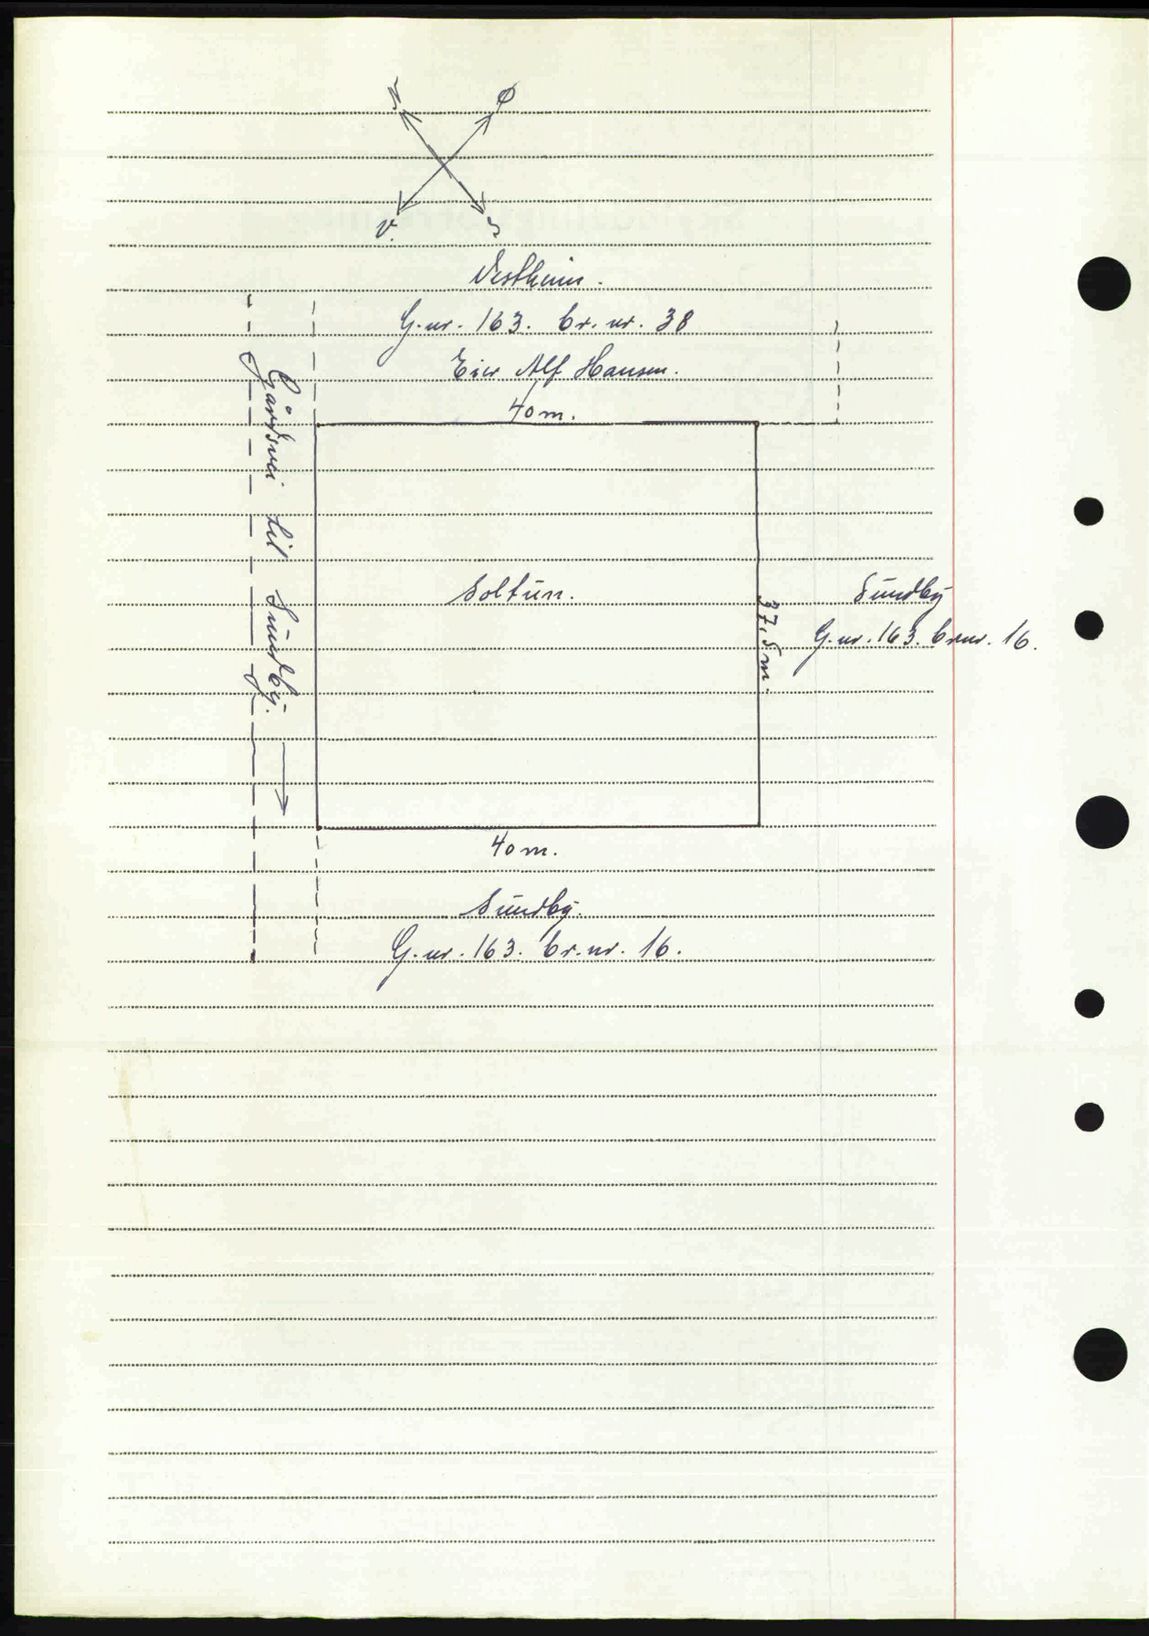 N
Ø
V.
S
Vestheim.
G.nr. 163. br. nr. 38
Eier Alf Hansen.
40 m.
Gårdsvei til Sundby.
Soltun.
37,5 m.
Sundby
G.nr. 163. brnr. 16.
40 m.
Sundby.
G.nr. 163. br.nr. 16.